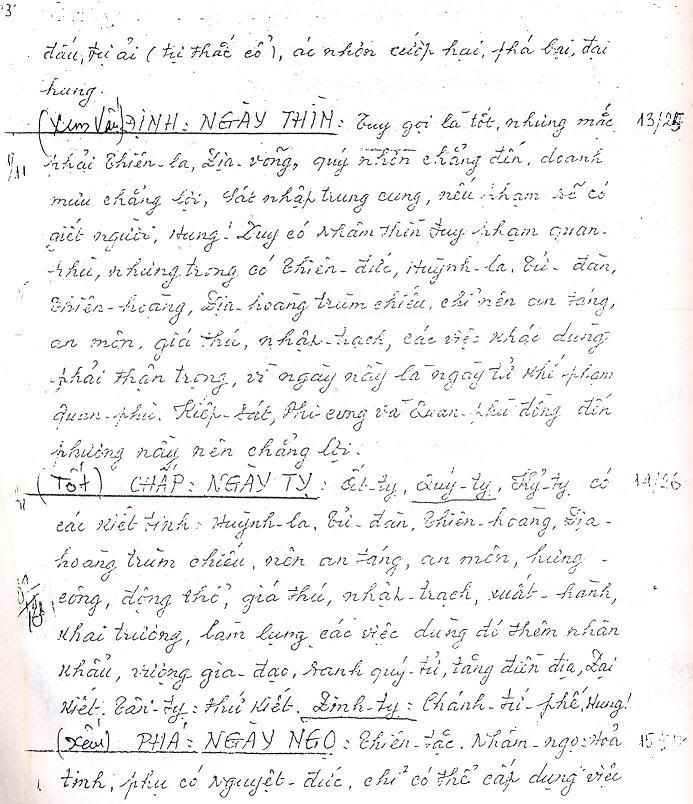 3
đấu, tự ải (tự thắc cổ), ác nhơn cướp hại, phá bại, đại
hung.
(Xem Vấn) ĐỊNH: NGÀY THÌN: Tuy gọi là tốt, nhưng mắc 13/25
phải Thiên-la, Địa-võng, quý nhơn chẳng đến, doanh
mưu chẳng lợi, Sát nhập trung cung, nếu phạm sẽ có
giết người, Hung! Duy có Nhâm Thìn tuy phạm quan-
phù, nhưng trong có Thiên-đức, Huỳnh-la, Tử-đàn,
Thiên-hoàng, Địa-hoàng trùm chiếu, chỉ nên an táng,
an môn, giá thú, nhập-trạch, các việc khác dùng
phải thận trọng, vì ngày này là ngày tử khí phạm
quan-phù. Kiếp-sát, Phi cung và Quan-phù đồng đến
phương này nên chẳng lợi.
(Tốt) CHẤP: NGÀY TỴ: Ất-tỵ, Quý-tỵ, Kỷ-tỵ có 14/26
các Kiết tinh: Huỳnh-la, Tử-đàn, Thiên-hoàng, Địa-
hoàng trùm chiếu, nên an táng, an môn, hưng-
công, động thổ, giá thú, nhập-trạch, xuất-hành,
Khai trương, làm lụng các việc dùng đó thêm nhân
khẩu, vượng gia-đạo, sanh quý-tử, tăng điền địa, Đại
Kiết. Tân-tỵ: thứ Kiết. Đinh-tỵ: Chánh-tứ-phế, Hung!
(Xấu) PHÁ: NGÀY NGỌ: Thiên-tặc. Nhâm-ngọ: Hoả
tinh, phụ có Nguyệt-đức, chỉ có thể cấp dụng việc